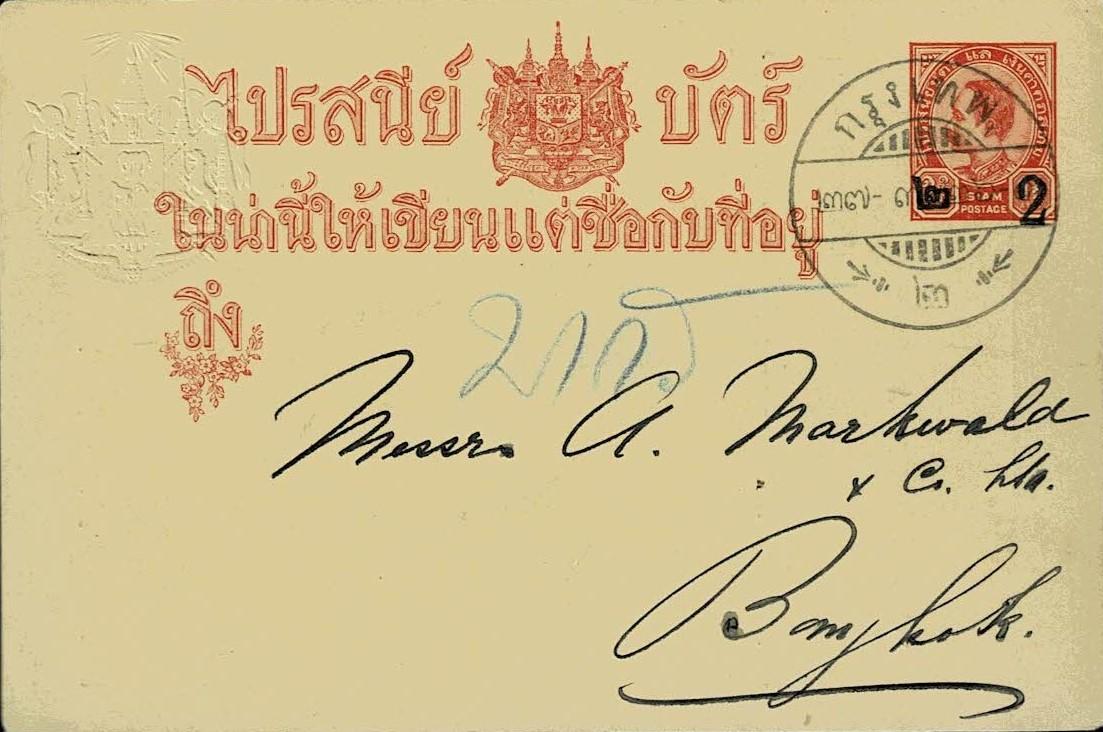 ไปรสนีย์ บัตร์
ในน่านี้ให้เขียนแต่ชื่อกับที่อยู่
ถึง
กรุงเทพฯ
๒
๒ 2
SIAM
POSTAGE
Messrs A. Markwald
& Co. Ltd.
Bangkok.